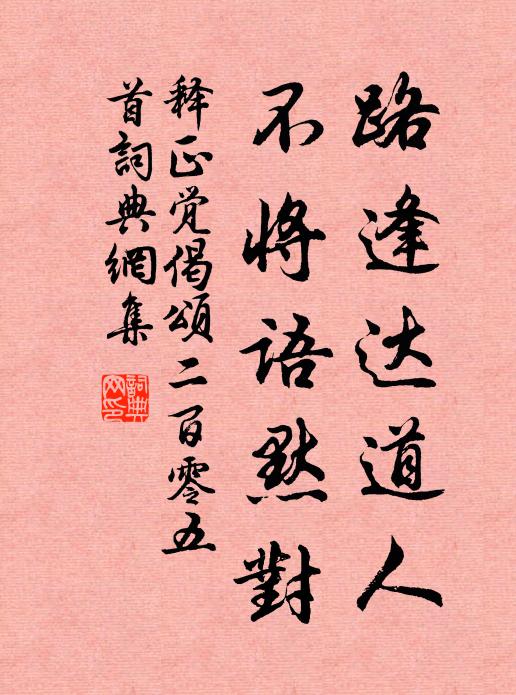 路逢达道人
不将語黙對
释正觉偈頌二百零五
首詞典網集
詞典网印